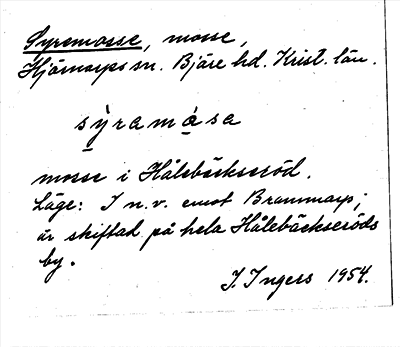 Syremosse, mosse,
Hjärnarps sn. Bjäre hd. Krist. län.
sỳramåsa
mosse i Hålebäckseröd.
Läge: I n.v. emot Brammarp;
är skiftad på hela Hålebäckseröds
by.
I. Ingers 1954.